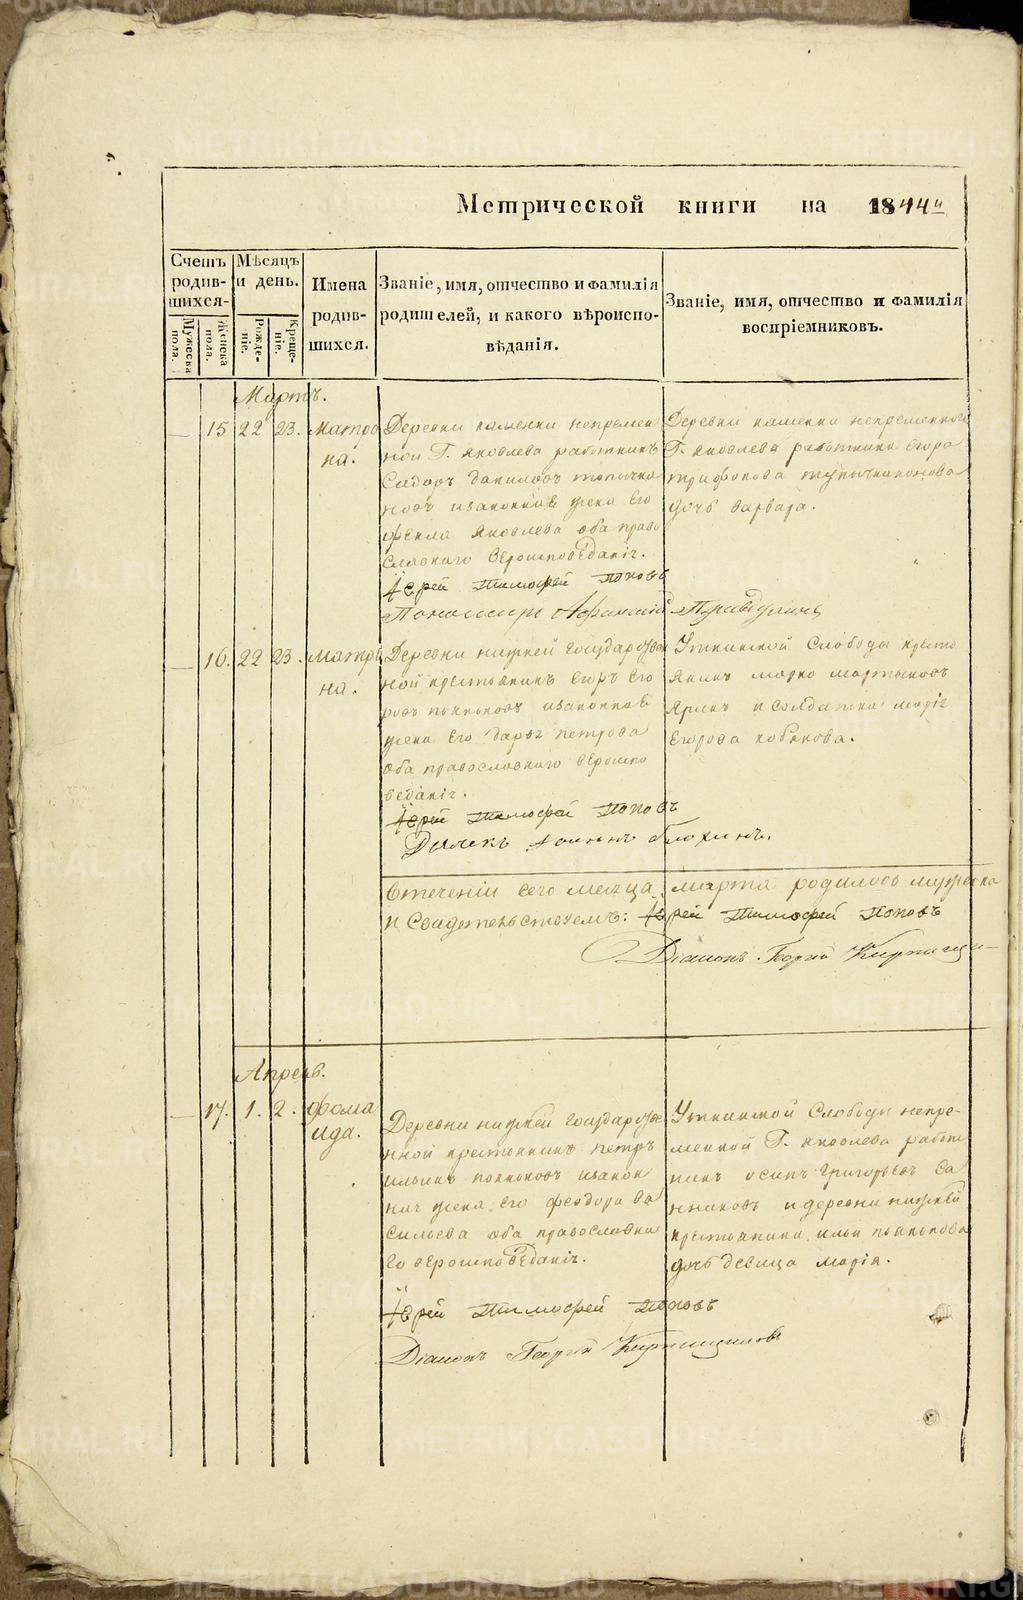 Метрической книги на 1844й
Счетъ родив-шихся. Мѣсяцъ и день. Имена родив-шихся. Званіе, имя, отчество и фамилія родителей, и какого вѣроиспо-вѣданія. Званіе, имя, отчество и фамилія воспріемниковъ.
Мужеска пола. Женска пола. Рожде-ніе. Креще-ніе.
Мартъ.
15 22 23. Матро
на.
Деревни каменки непремен
ной Г. Яковлева работникъ
Сидоръ даниловъ
изаконная жена Его
Яковлева оба право
славнаго вероисповѣданія.
Іерей Тимофей Поповъ
Пономарь Афанасий
Деревни каменки непременного
Г. Яковлева работника Егора
трифонова
дочь варвара.
16. 22 23. Матро
на.
Деревни нижней государствен
ной крестьянинъ Егоръ Его
ровъ пьянковъ изаконная
жена Его Дарья петрова
оба православнаго вероиспо
веданія.
Іерей Тимофей Поповъ
Дьячекъ Іоаннъ
Уткинской Слободы кресть
янинъ марко мартыновъ
исолдатка марія
Егорова
втечении сего месяца марта родилось мужеска
и Свидетельствуемъ: Іерей Тимофей Поповъ
Діаконъ Георгій
Апрель.
17. 1. 2. Фома
ида.
Деревни нижней государстве
нной крестьянинъ петръ
ильинъ пьянковъ изакон
ная жена его феодора ва
сильева оба православна
го вероисповѣданія.
Іерей Тимофей Поповъ
Діаконъ Георгій Кирпищиковъ
Уткинской Слободы непре-
менной Г. Яковлева работ
никъ осипъ григорьевъ
и деревни нижней
крестьянина ильи пьянкова
дочь девица марія.
METRIKI.GASO-URAL.RU